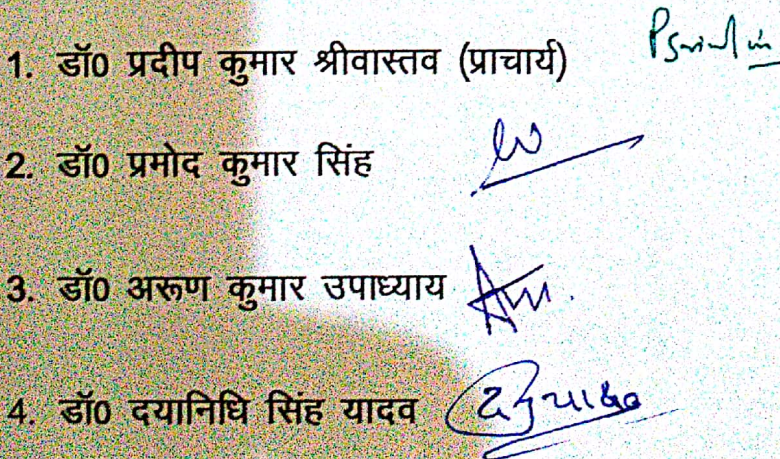 1. डॉ0 प्रदीप कुमार श्रीवास्तव (प्राचार्य)
2. डॉ0 प्रमोद कुमार सिंह
3. डॉ0 अरूण कुमार उपाध्याय
4. डॉ0 दयानिधि सिंह यादव